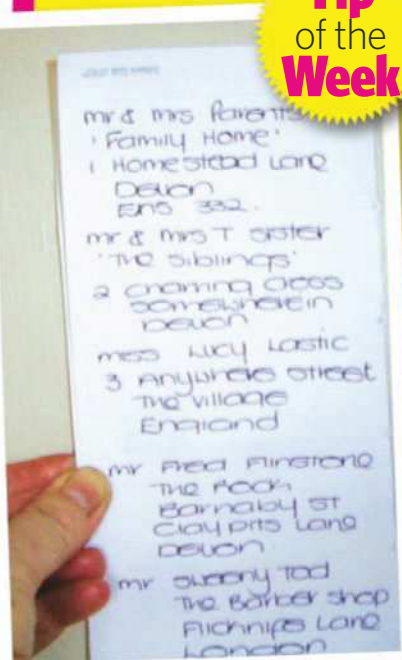 Tip
of the
Week
mr & mrs Parents
'Family Home'
1 Homestead Lane
Devon
EN5 332.
mr & mrs T sister
'The siblings'
2 charming cross
somewhere in
Devon
miss Lucy Lastic
3 Anywhere street
The village
England
mr Fred Flinstone
The Rock
Barnaby ST
Clay pits Lane
Devon
mr sweeny Tod
The Barber shop
Flichnips Lane
London